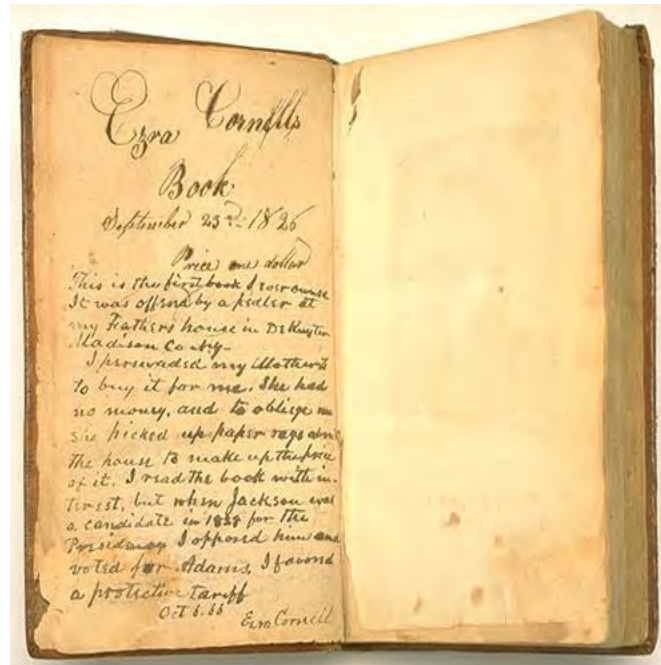 Ezra Cornells
Book
September 23rd 1826
Price one dollar
This is the first book I ever owned
It was offered by a pedler at
my Fathers house in DeRuyter
Madison Co NY-
I persuaded my Mother
to buy it for me. She had
no money, and to obliege me
she picked up paper rags about
the house to make up the price
of it. I read the book with in-
terest, but when Jackson was
a candidate in 1828 for the
Presidency I opposed him and
voted for Adams. I favored
a protective tariff
Oct 6. 66
Ezra Cornell